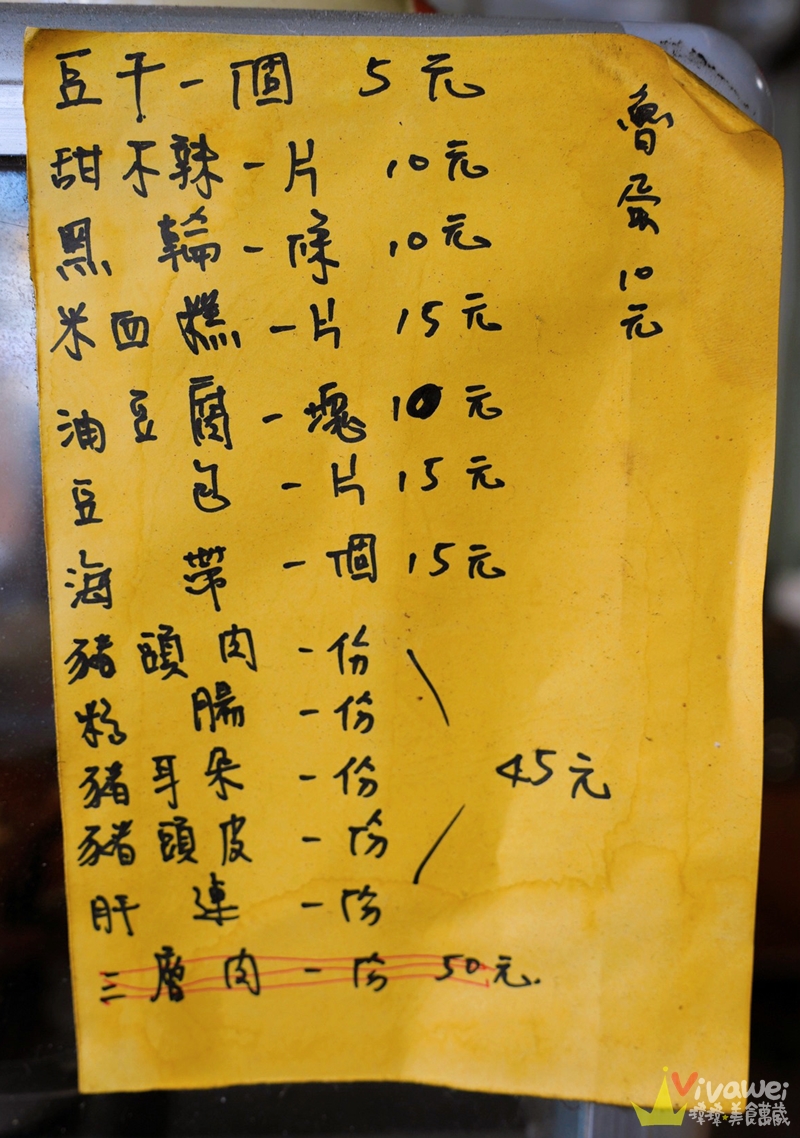 豆干一個 5元
甜不辣一片 10元
黑輪一條 10元
米血糕一片 15元
油豆腐一塊 10元
豆包一片 15元
海帶一個 15元
豬頭肉一份
粉腸一份
豬耳朵一份
豬頭皮一份
肝連一份
45元
三層肉一份 50元.
魯蛋10元
Vivawei
美食萬歲